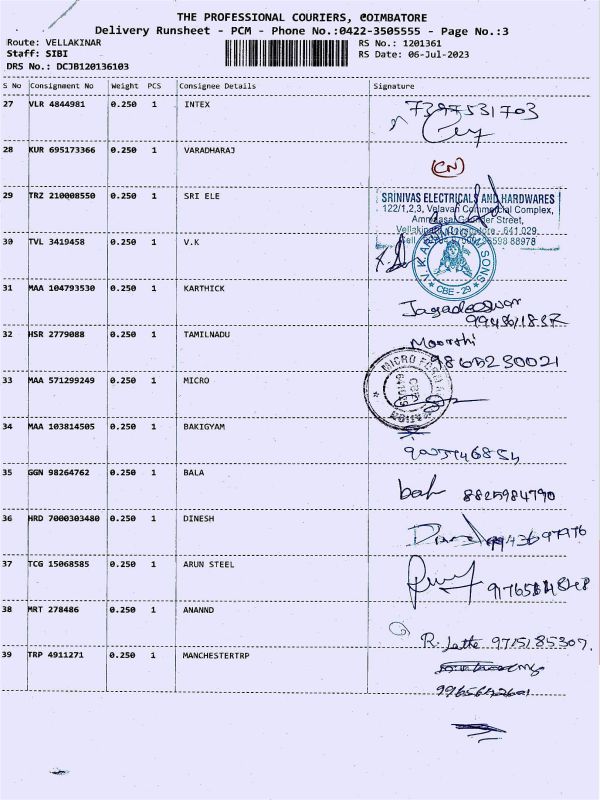 THE PROFESSIONAL COURIERS, COIMBATORE
Delivery Runsheet - PCM - Phone No.:0422-3505555 - Page No.:3
Route: VELLAKINAR RS No.: 1201361
Staff: SIBI RS Date: 06-Jul-2023
DRS No.: DCJB120136103
S No Consignment No Weight PCS Consignee Details Signature
27 VLR 4844981 0.250 1 INTEX 7397531703
28 KUR 695173366 0.250 1 VARADHARAJ
(CN)
29 TRZ 210008550 0.250 1 SRI ELE
SRINIVAS ELECTRICALS AND HARDWARES
122/1,2,3, Velavan Commercial Complex,
Street,
641 029
98598 88978
30 TVL 3419458 0.250 1 V.K
CBE - 29
31 MAA 104793530 0.250 1 KARTHICK
Jagadeeswar
32 HSR 2779088 0.250 1 TAMILNADU
Moorthi
9865230021
33 MAA 571299249 0.250 1 MICRO
MICRO
34 MAA 103814505 0.250 1 BAKIGYAM
35 GGN 98264762 0.250 1 BALA
8825984790
36 HRD 7000303480 0.250 1 DINESH
37 TCG 15068585 0.250 1 ARUN STEEL
38 MRT 278486 0.250 1 ANANND
R. Latte 9715185307.
39 TRP 4911271 0.250 1 MANCHESTERTRP